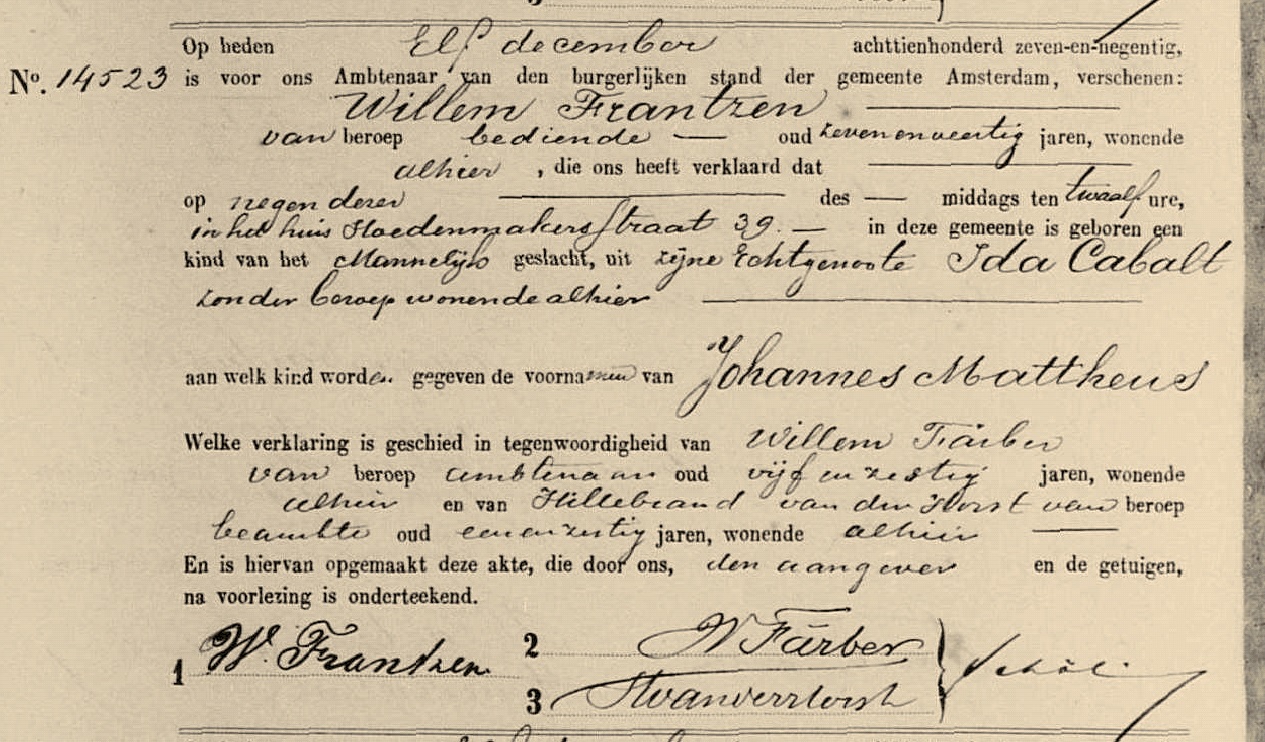 Op heden Elf december achttienhonderd zeven-en-negentig,
No. 14523 is voor ons Ambtenaar van den burgerlijken stand der gemeente Amsterdam, verschenen:
Willem Frantzen
van beroep bediende oud zevenenveertig jaren, wonende
alhier , die ons heeft verklaard dat
op negen dezer des middags ten twaalf ure,
in het huis Hoedenmakersstraat 39. in deze gemeente is geboren een
kind van het Mannelijk geslacht, uit zijne Echtgenoote Ida Cabalt
zonder beroep wonende alhier
aan welk kind worden gegeven de voornamen van Johannes Mattheus
Welke verklaring is geschied in tegenwoordigheid van Willem Färber
van beroep ambtenaar oud vijfenzestig jaren, wonende
alhier en van Hillebrand van der Horst van beroep
beambte oud eenenzestig jaren, wonende alhier
En is hiervan opgemaakt deze akte, die door ons, den aangever en de getuigen,
na voorlezing is onderteekend.
1 W. Frantzen 2 W Färber
3 HvanderHorst